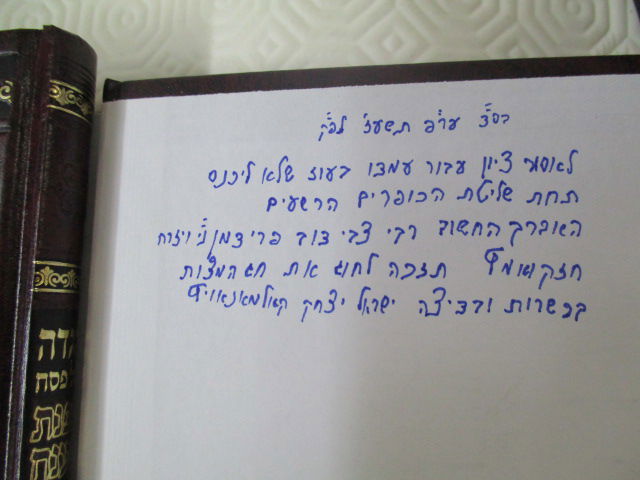 בס"ד ער"פ תשעז לפ"ק
לאות ציון עבור עמדו בעוז שלא ליכנס
תחת שליטת הכופרים הרשעים
האברך החשוב רבי צבי דוב פרידמן ני' ויזרח
חזק ואמץ תזכה לחוג את חג המצות
בכשרות ובדיצה ישראל יצחק קאלמאנאוויץ
פסח